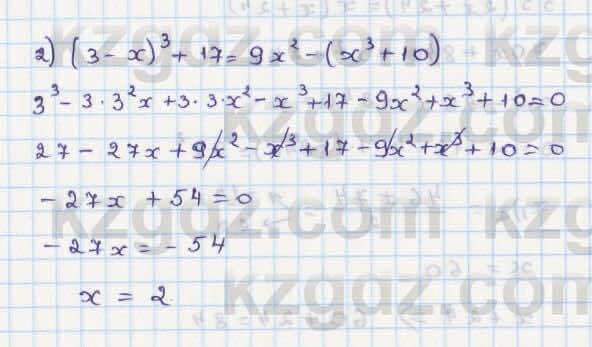 2) (3 - x)³ + 17 = 9x² - (x³ + 10)
3³ - 3 · 3²x + 3 · 3 · x² - x³ + 17 - 9x² + x³ + 10 = 0
27 - 27x + 9x² - x³ + 17 - 9x² + x³ + 10 = 0
- 27x + 54 = 0
- 27x = - 54
x = 2.
kzgdz.com